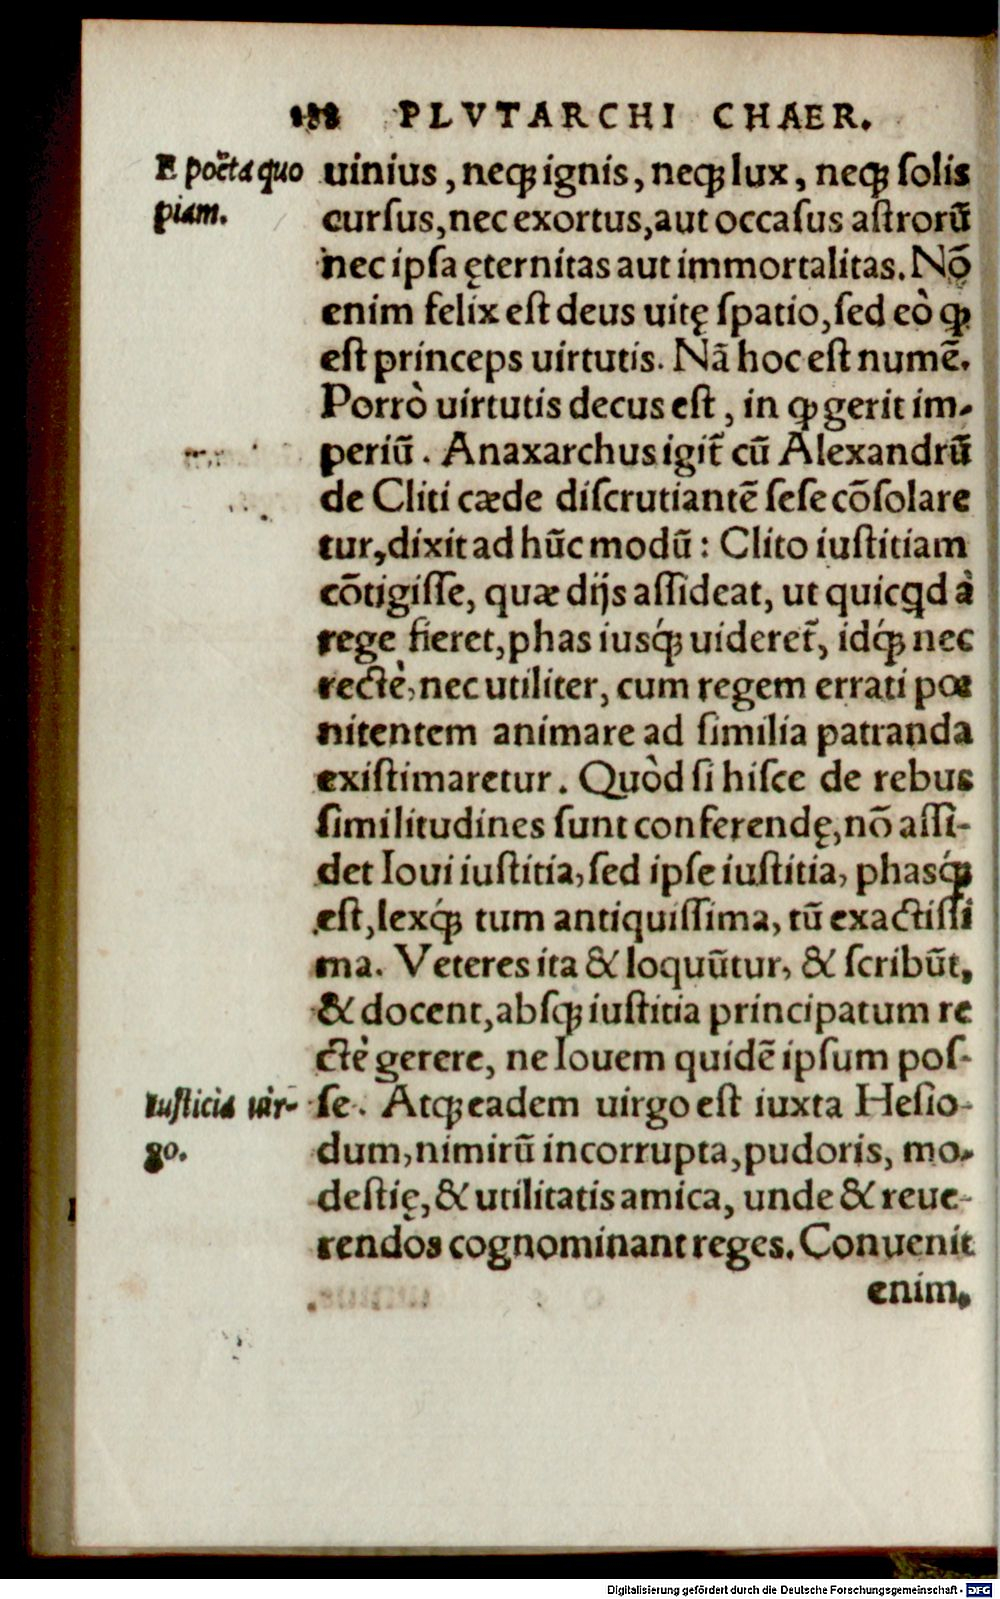 188 PLVTARCHI CHAER.
E poëta quo
piam.
uinius, neqꝫ ignis, neqꝫ lux, neqꝫ ſolis
curſus, nec exortus, aut occaſus aſtrorũ
nec ipſa ęternitas aut immortalitas. Nõ
enim felix eſt deus uitę ſpatio, ſed eò ꝙ
eſt princeps uirtutis. Nã hoc eſt numẽ.
Porrò uirtutis decus eſt, in ꝙ gerit im-
periũ. Anaxarchus igit̃ cũ Alexandrũ
de Cliti cæde diſcrutiantẽ ſeſe cõſolare
tur, dixit ad hũc modũ: Clito iuſtitiam
cõtigiſſe, quæ dijs aſſideat, ut quicqd à
rege fieret, phas iusq́ꝫ uideret̃, idq́ꝫ nec
rectè, nec utiliter, cum regem errati pœ
nitentem animare ad ſimilia patranda
exiſtimaretur. Quòd ſi hiſce de rebus
ſimilitudines ſunt conferendę, nõ aſſi-
det Ioui iuſtitia, ſed ipſe iuſtitia, phasq́ꝫ
eſt, lexq́ꝫ tum antiquiſſima, tũ exactiſſi
ma. Veteres ita & loquũtur, & ſcribũt,
& docent, abſqꝫ iuſtitia principatum re
ctè gerere, ne Iouem quidẽ ipſum poſ-
Iuſticia uir-
go.
ſe. Atqꝫ eadem uirgo eſt iuxta Heſio-
dum, nimirũ incorrupta, pudoris, mo-
deſtię, & utilitatis amica, unde & reue-
rendos cognominant reges. Conuenit
enim.
Digitalisierung gefördert durch die Deutsche Forschungsgemeinschaft - DFG